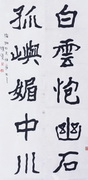 白雲抱幽石
孤嶼媚中川